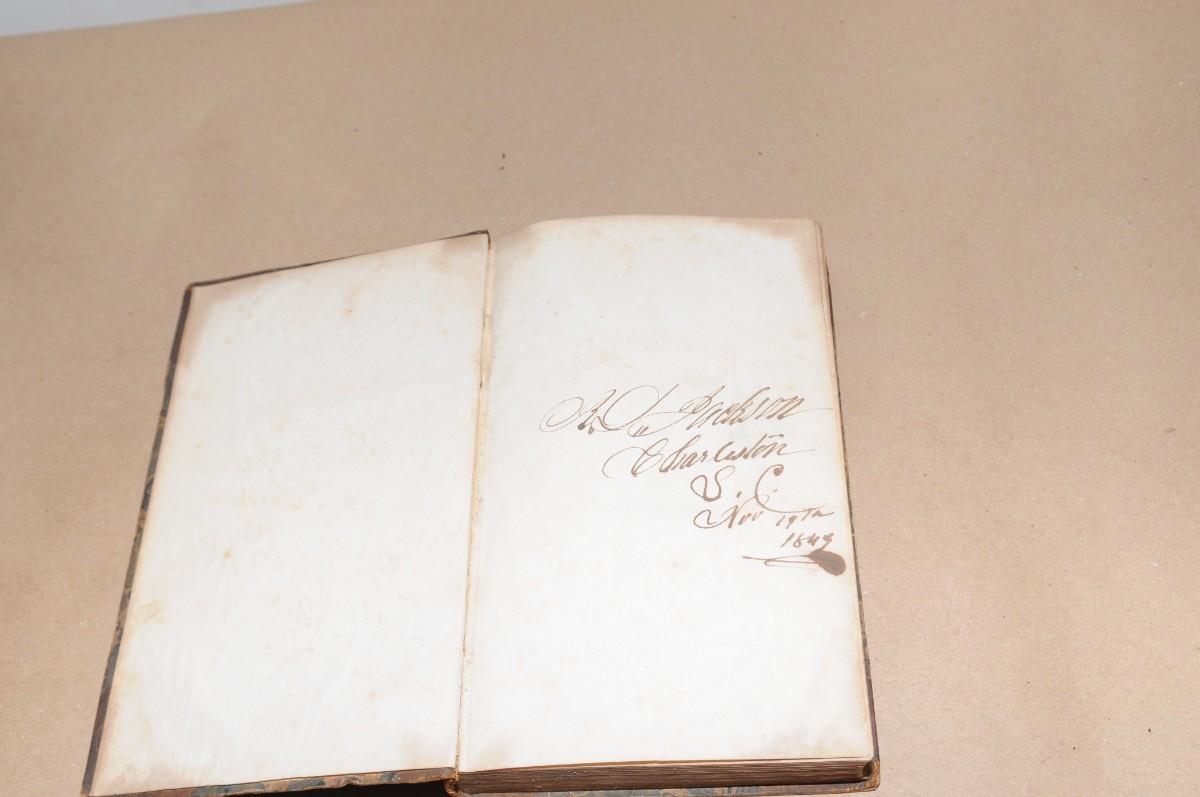 Jackson
Charleston
S. C.
Nov 19th
1849